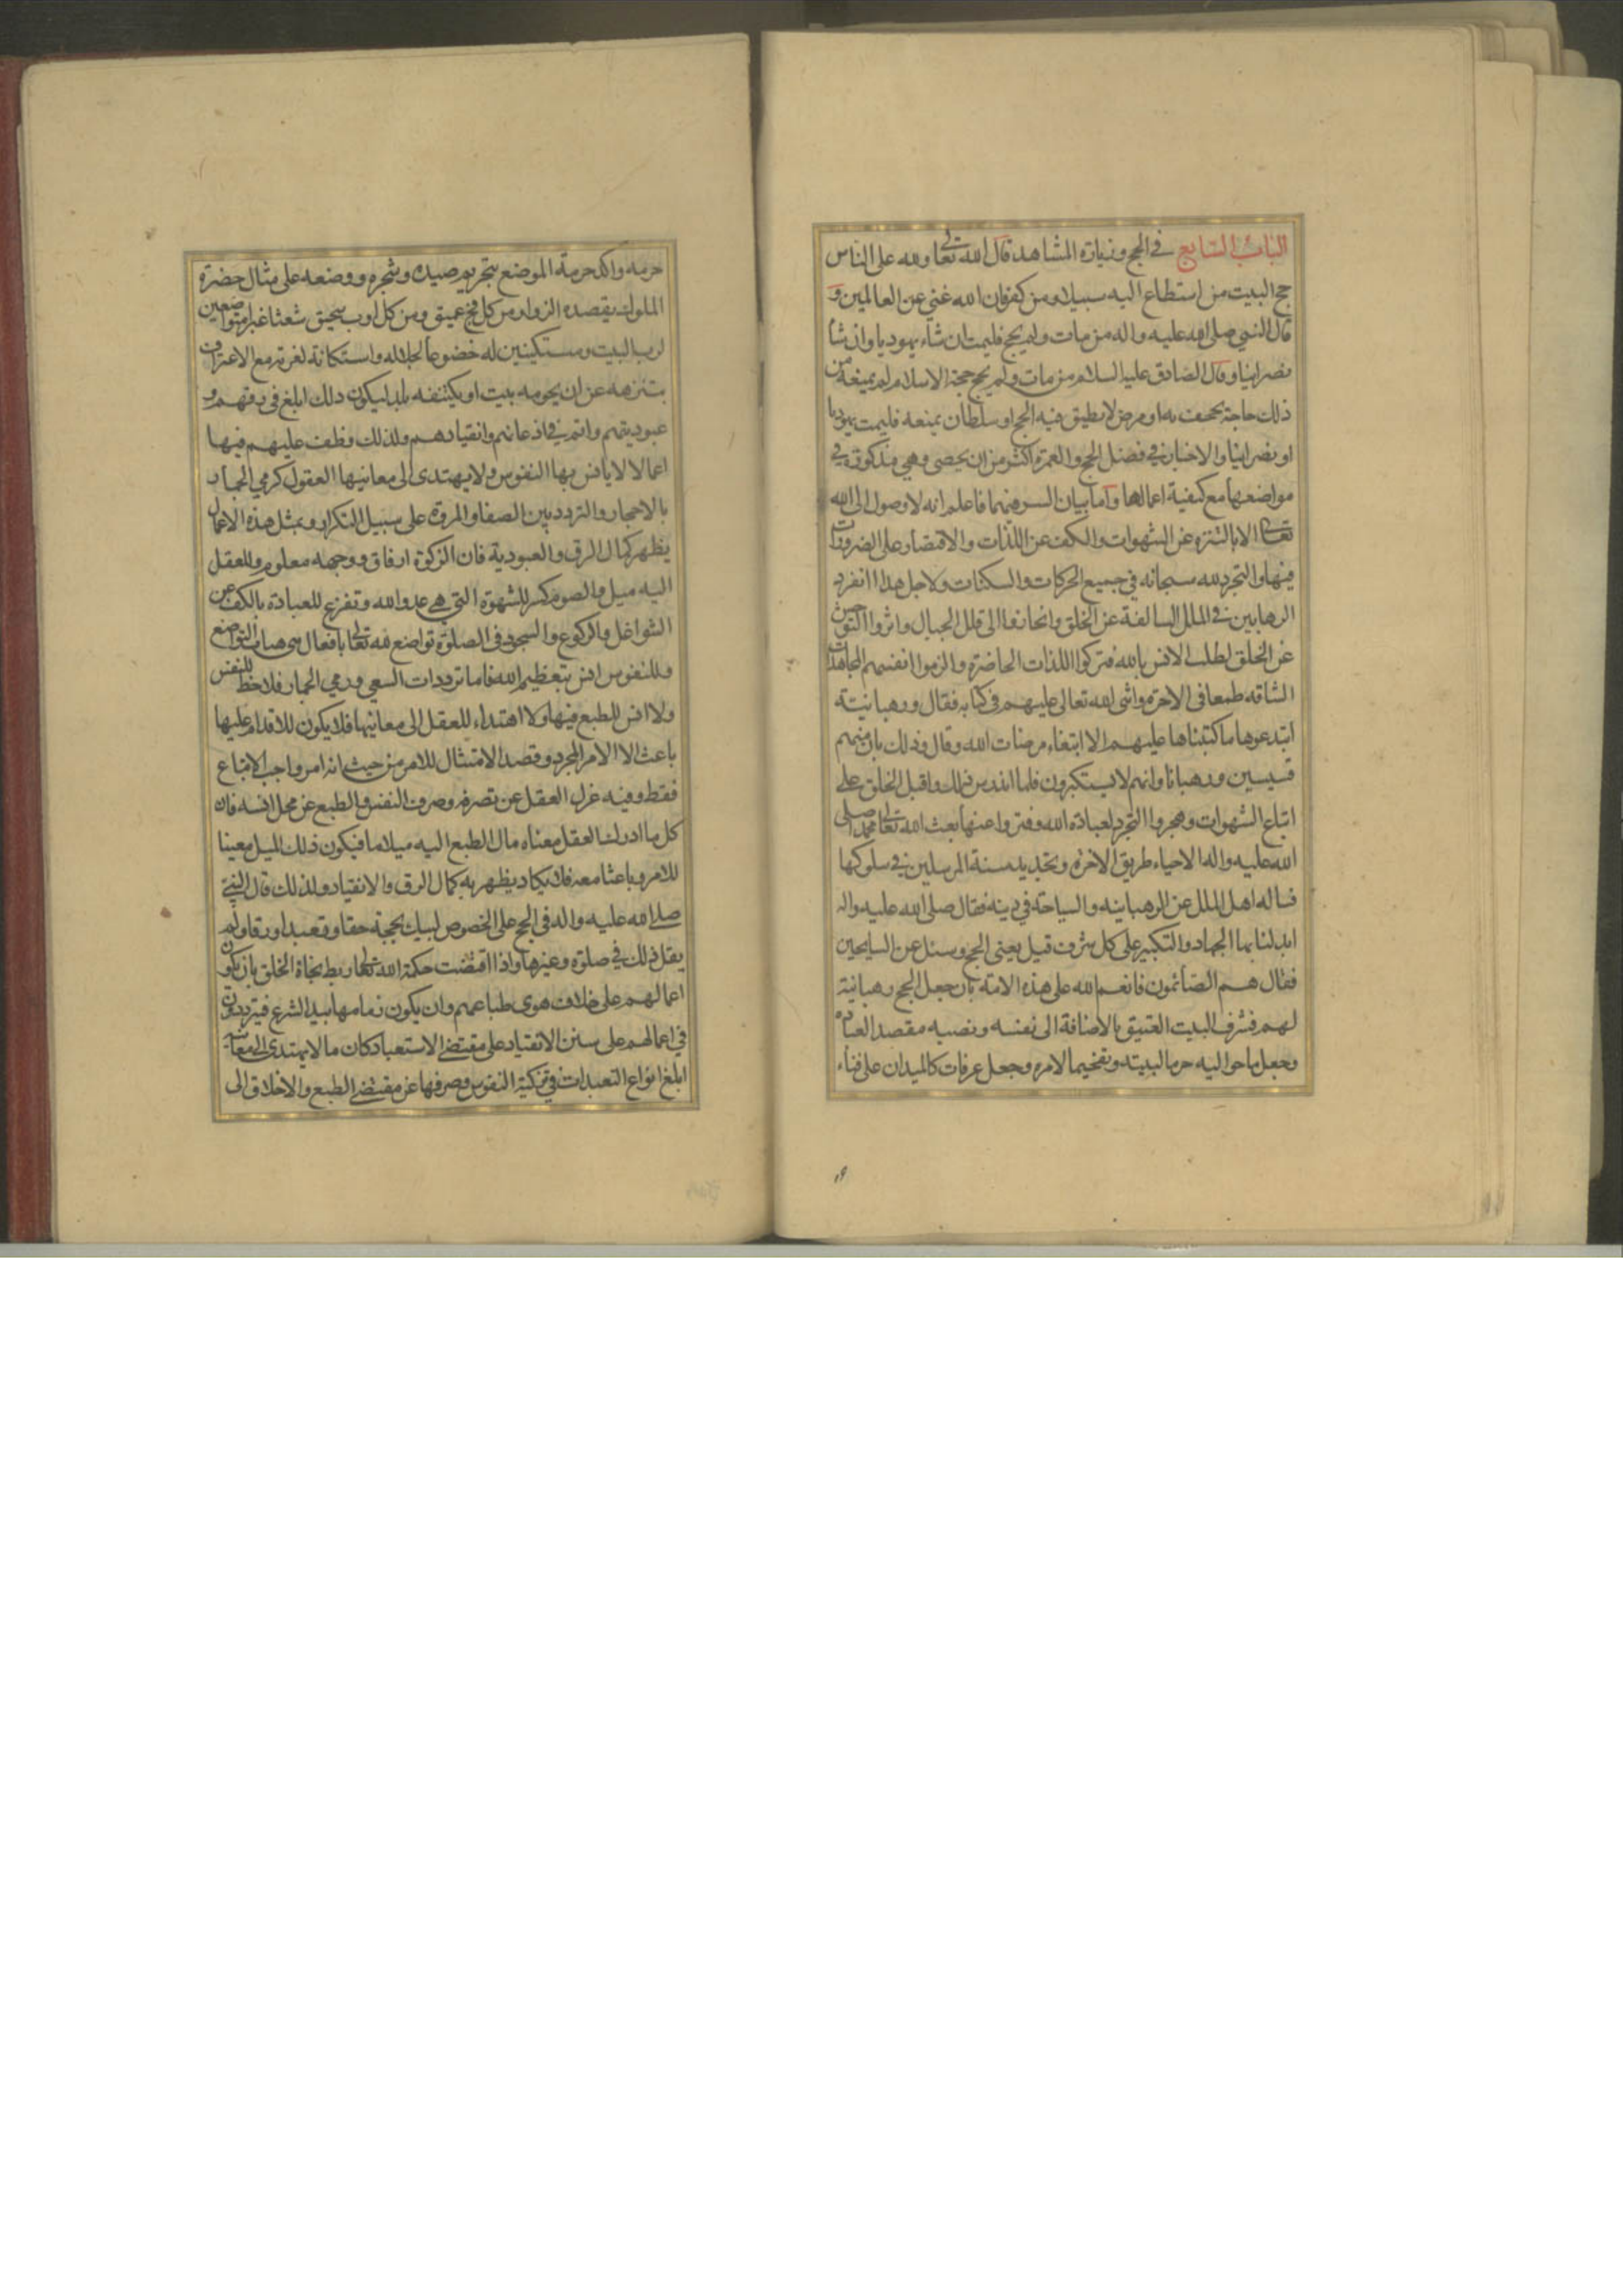 الباب السابع في الحج وزيارة المشاهد قال الله تعالى ولله على الناس
حج البيت من استطاع اليه سبيلا ومن كفر فان الله غني عن العالمين و
قال النبي صلى الله عليه واله من مات ولم يحج فليمت ان شاء يهوديا وان شا
نصرانيا وقال الصادق عليه السلام من مات ولم يحج حجة الاسلام لم يمنعه من
ذلك حاجة تجحف به او مرض لا يطيق فيه الحج او سلطان يمنعه فليمت يهوديا
او نصرانيا والاخبار في فضل الحج والعمرة اكثر من ان يحصى وهي مذكورة في
مواضعها مع كيفية اعمالها واما بيان السر فيهما فاعلم انه لا وصول الى الله
تعالى الا بالتنزه عن الشهوات والكف عن اللذات والاقتصار على الضرورات
فيها والتجرد لله سبحانه في جميع الحركات والسكنات ولاجل هذا انفرد
الرهابين في الملل السالفة عن الخلق وانحازوا الى قلل الجبال واثروا التوحش
عن الخلق لطلب الانس بالله فتركوا اللذات الحاضرة والزموا انفسهم المجاهدات
الشاقة طمعا في الاخرة واثنى الله تعالى عليهم في كتابه فقال ورهبانيتة
ابتدعوها ما كتبناها عليهم الا ابتغاء مرضات الله وقال وذلك بان منهم
قسيسين ورهبانا وانهم لا يستكبرون فلما اندرس ذلك واقبل الخلق على
اتباع الشهوات وهجروا التجرد لعبادة الله وفتروا عنها بعث الله تعالى محمدا صلى
الله عليه واله لاحياء طريق الاخرة وتجديد سنة المرسلين في سلوكها
فساله اهل الملل عن الرهبانية والسياحة في دينه فقال صلى الله عليه واله
ابدلنا بها الجهاد والتكبير على كل شرف قيل يعني الحج وسئل عن السايحين
فقال هم الصائمون فانعم الله على هذه الامة بان جعل الحج رهبانية
لهم فشرف البيت العتيق بالاضافة الى نفسه ونصبه مقصد العباده
وجعل ما حواليه حرما لبيته وتفخيما لامره وجعل عرفات كالميدان على فناء
حرمه واكد حرمة الموضع بتحريم صيده وشجره ووضعه على مثال حضرة
الملوك يقصده الزوار من كل فج عميق ومن كل اوب سحيق شعثا غبرا متواضعين
لرب البيت ومستكينين له خضوعا لجلاله واستكانة لعزته مع الاعتراف
بتنزهه عن ان يحويه بيت او يكتنفه بلد ليكون ذلك ابلغ في رقهم و
عبوديتهم واتم في اذعانهم وانقيادهم ولذلك وظف عليهم فيها
اعمالا لا يانس بها النفوس ولا يهتدى الى معانيها العقول كرمي الجمار
بالاحجار والتردد بين الصفا والمروة على سبيل التكرار وبمثل هذه الاعمال
يظهر كمال الرق والعبودية فان الزكوة ارفاق ووجهه معلوم وللعقل
اليه ميل والصوم كسر للشهوة التي هي عدو الله وتفرغ للعبادة بالكف عن
الشواغل والركوع والسجود في الصلوة تواضع لله تعالى بافعال هي هيات التواضع
وللنفوس انس بتعظيم الله فاما ترددات السعي ورمي الجمار فلا حظ للنفس
ولا انس للطبع فيها ولا اهتداء للعقل الى معانيها فلا يكون للاقدام عليها
باعث الا الامر المجرد وقصد الامتثال للامر من حيث انه امر واجب الاتباع
فقط وفيه عزل العقل عن تصرفه وصرف النفس والطبع عن محل انسه فان
كل ما ادرك العقل معناه مال الطبع اليه ميلا ما فيكون ذلك الميل معينا
للامر وباعثا معه فلا يكاد يظهر به كمال الرق والانقياد ولذلك قال النبي
صلى الله عليه واله في الحج على الخصوص لبيك بحجة حقا وتعبدا ورقا ولم
يقل ذلك في صلوة وغيرها واذا اقتضت حكمة الله تعالى ربط نجاة الخلق بان يكون
اعمالهم على خلاف هوى طباعهم وان يكون زمامها بيد الشرع فيترددون
في اعمالهم على سنن الانقياد على مقتضى الاستعباد كان ما لا يهتدى الى معانيه
ابلغ انواع التعبدات في تزكية النفوس وصرفها عن مقتضى الطبع والاخلاق الى